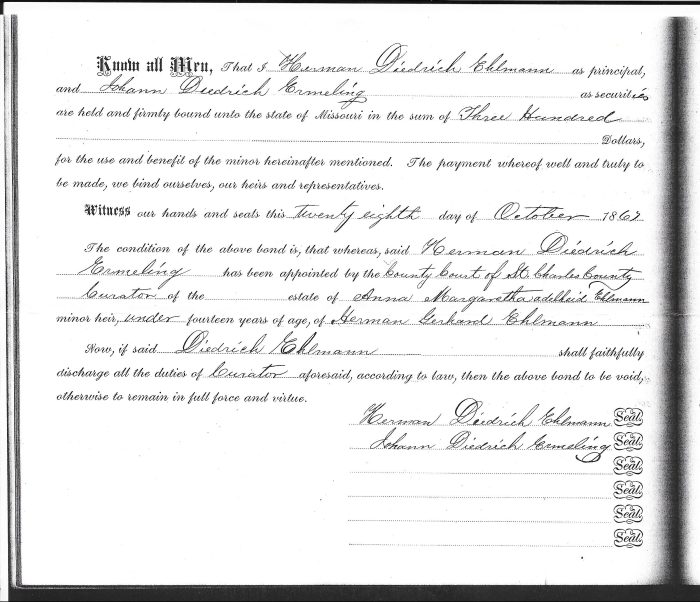 Know all Men, That I Herman Diedrich Ehlmann as principal,
and Johann Diedrich Ermeling as securities
are held and firmly bound unto the state of Missouri in the sum of Three Hundred
Dollars,
for the use and benefit of the minor hereinafter mentioned. The payment whereof well and truly to
be made, we bind ourselves, our heirs and representatives.
Witness our hands and seals this twenty eighth day of October 1867
The condition of the above bond is, that whereas, said Herman Diedrich
Ermeling has been appointed by the County Court of St. Charles County
Curator of the estate of Anna Margaretha adelheid Ehlmann
minor heir, under fourteen years of age, of Herman Gerhard Ehlmann
Now, if said Diedrich Ehlmann shall faithfully
discharge all the duties of Curator aforesaid, according to law, then the above bond to be void,
otherwise to remain in full force and virtue.
Herman Diedrich Ehlmann Seal.
Johann Diedrich Ermeling Seal.
Seal.
Seal.
Seal.
Seal.